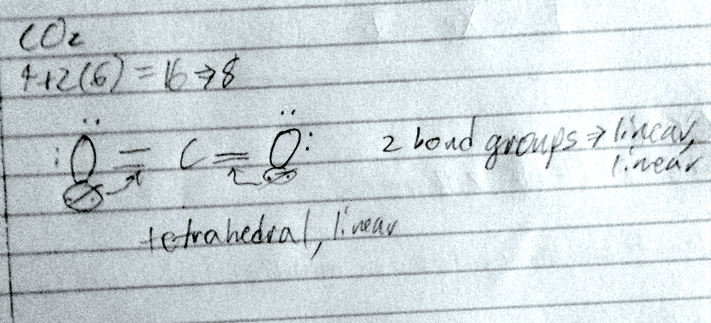 CO2
4+2(6) = 16 → 8
:Ö = C = Ö: 2 bond groups → linear,
linear
tetrahedral, linear